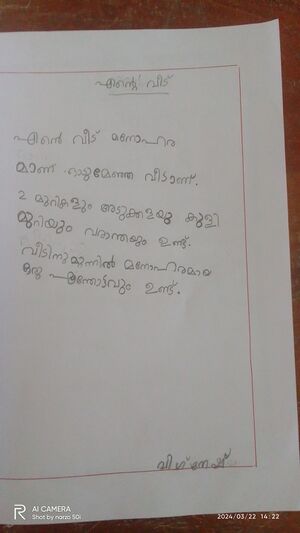 എന്റെ വീട്
എന്റെ വീട് മനോഹര
മാണ് ഓടുമേഞ്ഞ വീടാണ്.
2 മുറികളും അടുക്കളയു കുളി
മുറിയും വരാന്തയും ഉണ്ട്.
വീടിനുമുന്നിൽ മനോഹരമായ
ഒരു പൂന്തോട്ടവും ഉണ്ട്.
വിഗ്നേഷ്
AI CAMERA
Shot by narzo 50i
2024/03/22 14:22